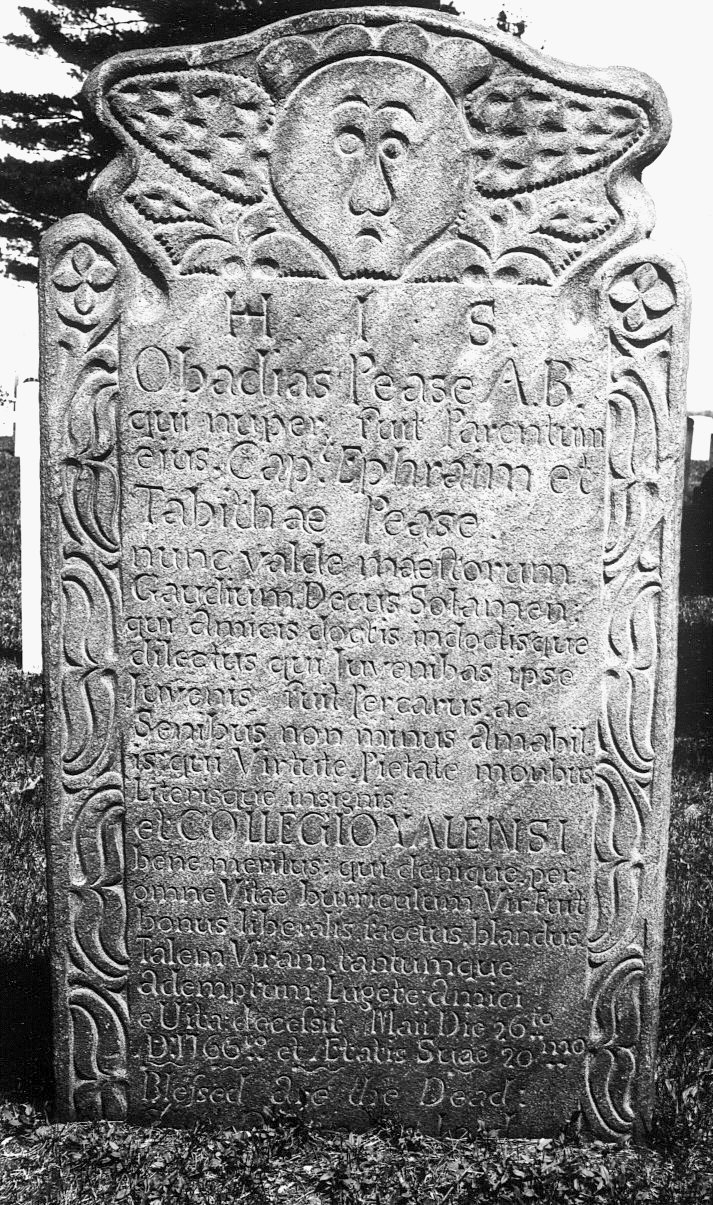 H. I. S.
Obadias Pease A.B.
qui nuper. fuit Parentum
ejus. Cap.t Ephraim et
Tabithae Pease.
nunc valde maeſtorum
Gaudium.Decus.Solamen:
qui amicis doctis indoctisque
dilectus qui Juvenibas ipse
Juvenis. fuit percarus. ac
Senibus non minus amabil
is: qui Virtute. Pietate moribus
Literisque insignis:
et COLLEGIO YALENSI
bene meritus: qui denique per
omne Vitae burriculum Vir fuit
bonus liberalis. facetus. blandus.
Talem Viram. tantumque
ademptum. Lugete amici
e Uita deceſsit Maii Die 26to
D.1766.to et Ætatis Suae 20mo
Bleſsed are the Dead: